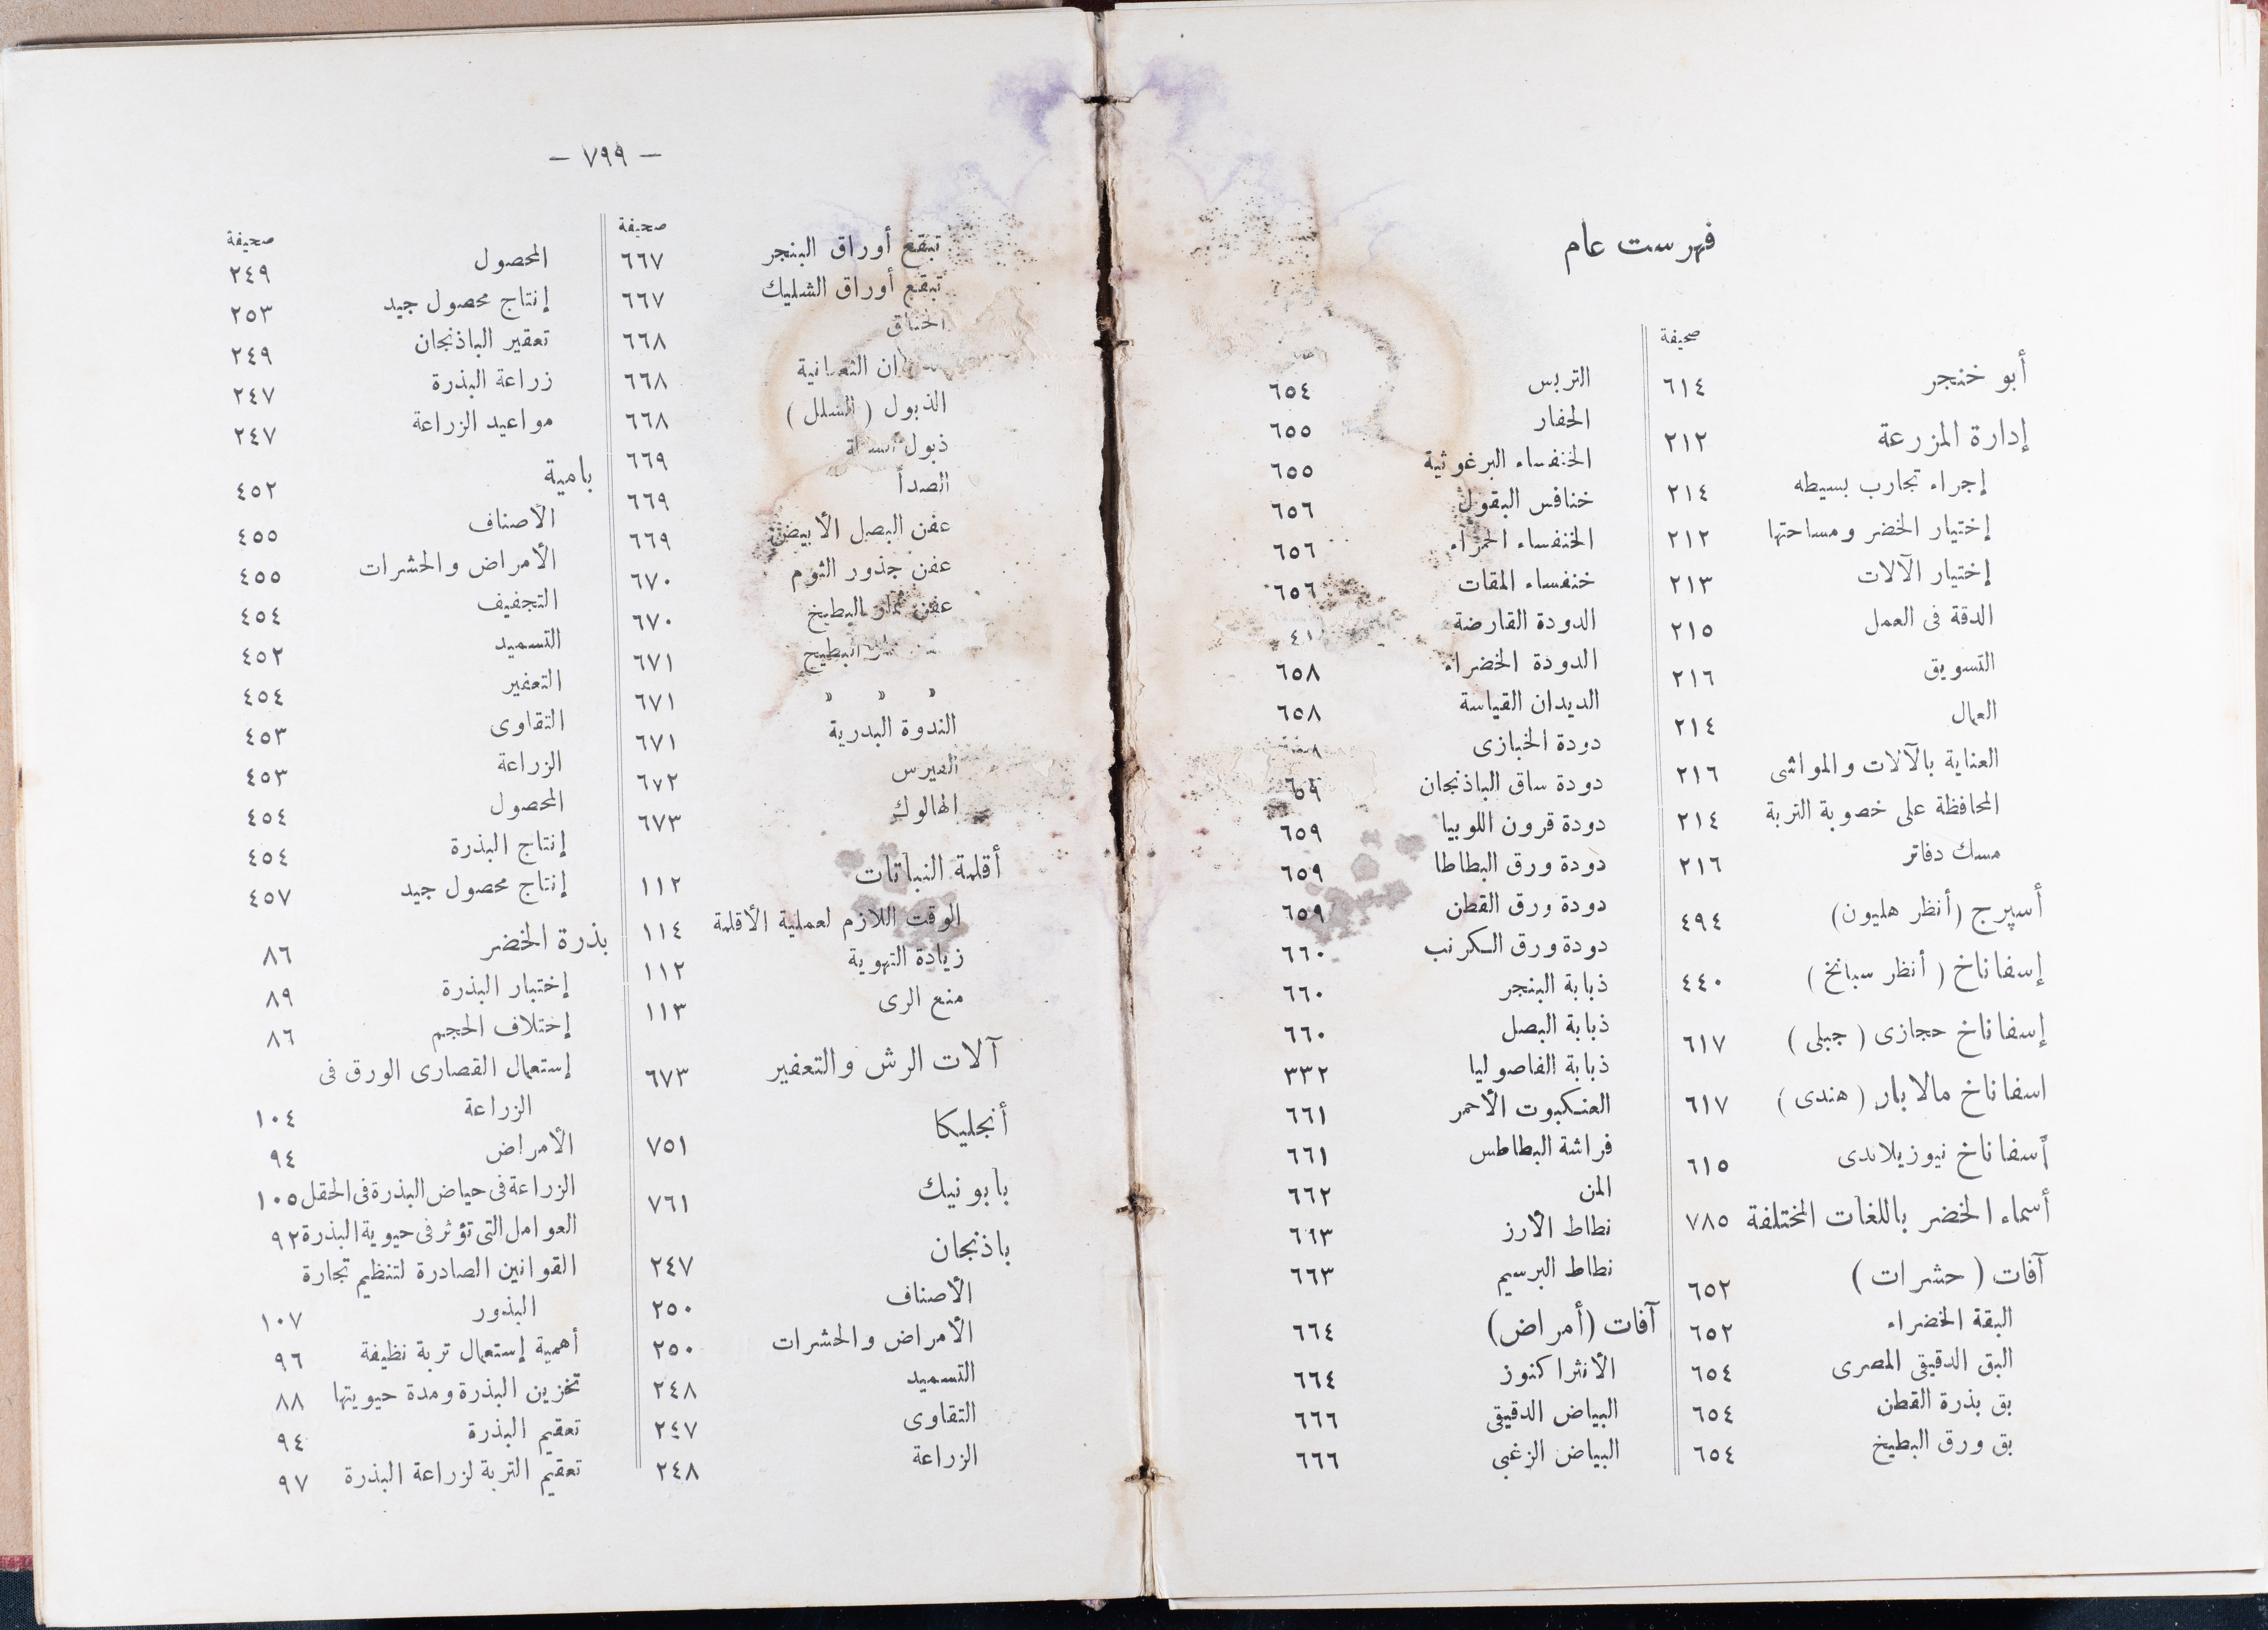 فهرست عام
صحيفة
أبو خنجر ٦١٤
إدارة المزرعة ٢١٢
إجراء تجارب بسيطه ٢١٤
إختيار الخضر ومساحتها ٢١٢
إختيار الآلات ٢١٣
الدقة فى العمل ٢١٥
التسويق ٢١٦
العمال ٢١٤
العناية بالآلات والمواشى ٢١٦
المحافظة على خصوبة التربة ٢١٤
مسك دفاتر ٢١٦
أسپرج (أنظر هليون) ٤٩٤
إسفاناخ (أنظر سبانخ) ٤٤٠
إسفاناخ حجازى (جبلى) ٦١٧
اسفاناخ مالابار (هندى) ٦١٧
اسفاناخ نيوزيلاندى ٦١٥
أسماء الخضر باللغات المختلفة ٧٨٥
آفات (حشرات) ٦٥٢
البقة الخضراء ٦٥٢
البق الدقيقى المصرى ٦٥٤
بق بذرة القطن ٦٥٤
بق ورق البطيخ ٦٥٤
التربس ٦٥٤
الحفار ٦٥٥
الخنفساء البرغوثية ٦٥٥
خنافس البقول ٦٥٦
الخنفساء الحمراء ٦٥٦
خنفساء المقات ٦٥٦
الدودة القارضة
الدودة الخضراء ٦٥٨
الديدان القياسة ٦٥٨
دودة الخبازى
دودة ساق الباذنجان ٦٥٩
دودة قرون اللوبيا ٦٥٩
دودة ورق البطاطا ٦٥٩
دودة ورق القطن ٦٥٩
دودة ورق الكرنب ٦٦٠
ذبابة البنجر ٦٦٠
ذبابة البصل ٦٦٠
ذبابة الفاصوليا ٣٣٢
العنكبوت الأحمر ٦٦١
فراشة البطاطس ٦٦١
المن ٦٦٢
نطاط الأرز ٦٦٣
نطاط البرسيم ٦٦٣
آفات (أمراض) ٦٦٤
الأنثراكنوز ٦٦٤
البياض الدقيقى ٦٦٦
البياض الزغبى ٦٦٦
— ٧٩٩ —
صحيفة
تبقع أوراق البنجر ٦٦٧
تبقع أوراق الشليك ٦٦٧
الخناق ٦٦٨
الثعبانية ٦٦٨
الذبول (الشلل) ٦٦٨
ذبول ٦٦٩
الصدأ ٦٦٩
عفن البصل الأبيض ٦٦٩
عفن جذور الثوم ٦٧٠
عفن ثمار البطيخ ٦٧٠
البطيخ ٦٧١
» » » ٦٧١
الندوة البدرية ٦٧١
الفيرس ٦٧٢
الهالوك ٦٧٣
أقلمة النباتات ١١٢
الوقت اللازم لعملية الأقلمة ١١٤
زيادة التهوية ١١٢
منع الرى ١١٣
آلات الرش والتعفير ٦٧٣
أنجليكا ٧٥١
بابونيك ٧٦١
باذنجان ٢٤٧
الأصناف ٢٥٠
الأمراض والحشرات ٢٥٠
التسميد ٢٤٨
التقاوى ٢٤٧
الزراعة ٢٤٨
صحيفة
المحصول ٢٤٩
إنتاج محصول جيد ٢٥٣
تعقير الباذنجان ٢٤٩
زراعة البذرة ٢٤٧
مواعيد الزراعة ٢٤٧
بامية ٤٥٢
الأصناف ٤٥٥
الأمراض والحشرات ٤٥٥
التجفيف ٤٥٤
التسميد ٤٥٢
التعفير ٤٥٤
التقاوى ٤٥٣
الزراعة ٤٥٣
المحصول ٤٥٤
إنتاج البذرة ٤٥٤
إنتاج محصول جيد ٤٥٧
بذرة الخضر ٨٦
إختبار البذرة ٨٩
إختلاف الحجم ٨٦
إستعمال القصارى الورق فى
الزراعة ١٠٤
الأمراض ٩٤
الزراعة فى حياض البذرة فى الحقل ١٠٥
العوامل التى تؤثر فى حيوية البذرة ٩٢
القوانين الصادرة لتنظيم تجارة
البذور ١٠٧
أهمية إستعمال تربة نظيفة ٩٦
تخزين البذرة ومدة حيويتها ٨٨
تعقيم البذرة ٩٤
تعقيم التربة لزراعة البذرة ٩٧